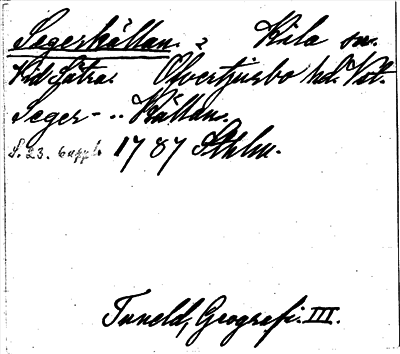 Segerkällan. 2 Kila sn.
Vid Sätra. Övertjurbo hd. Vstm.
Seger- .. Källan.
S. 23. Suppl. 1787 Sthlm.
Tuneld, Geografi. III.